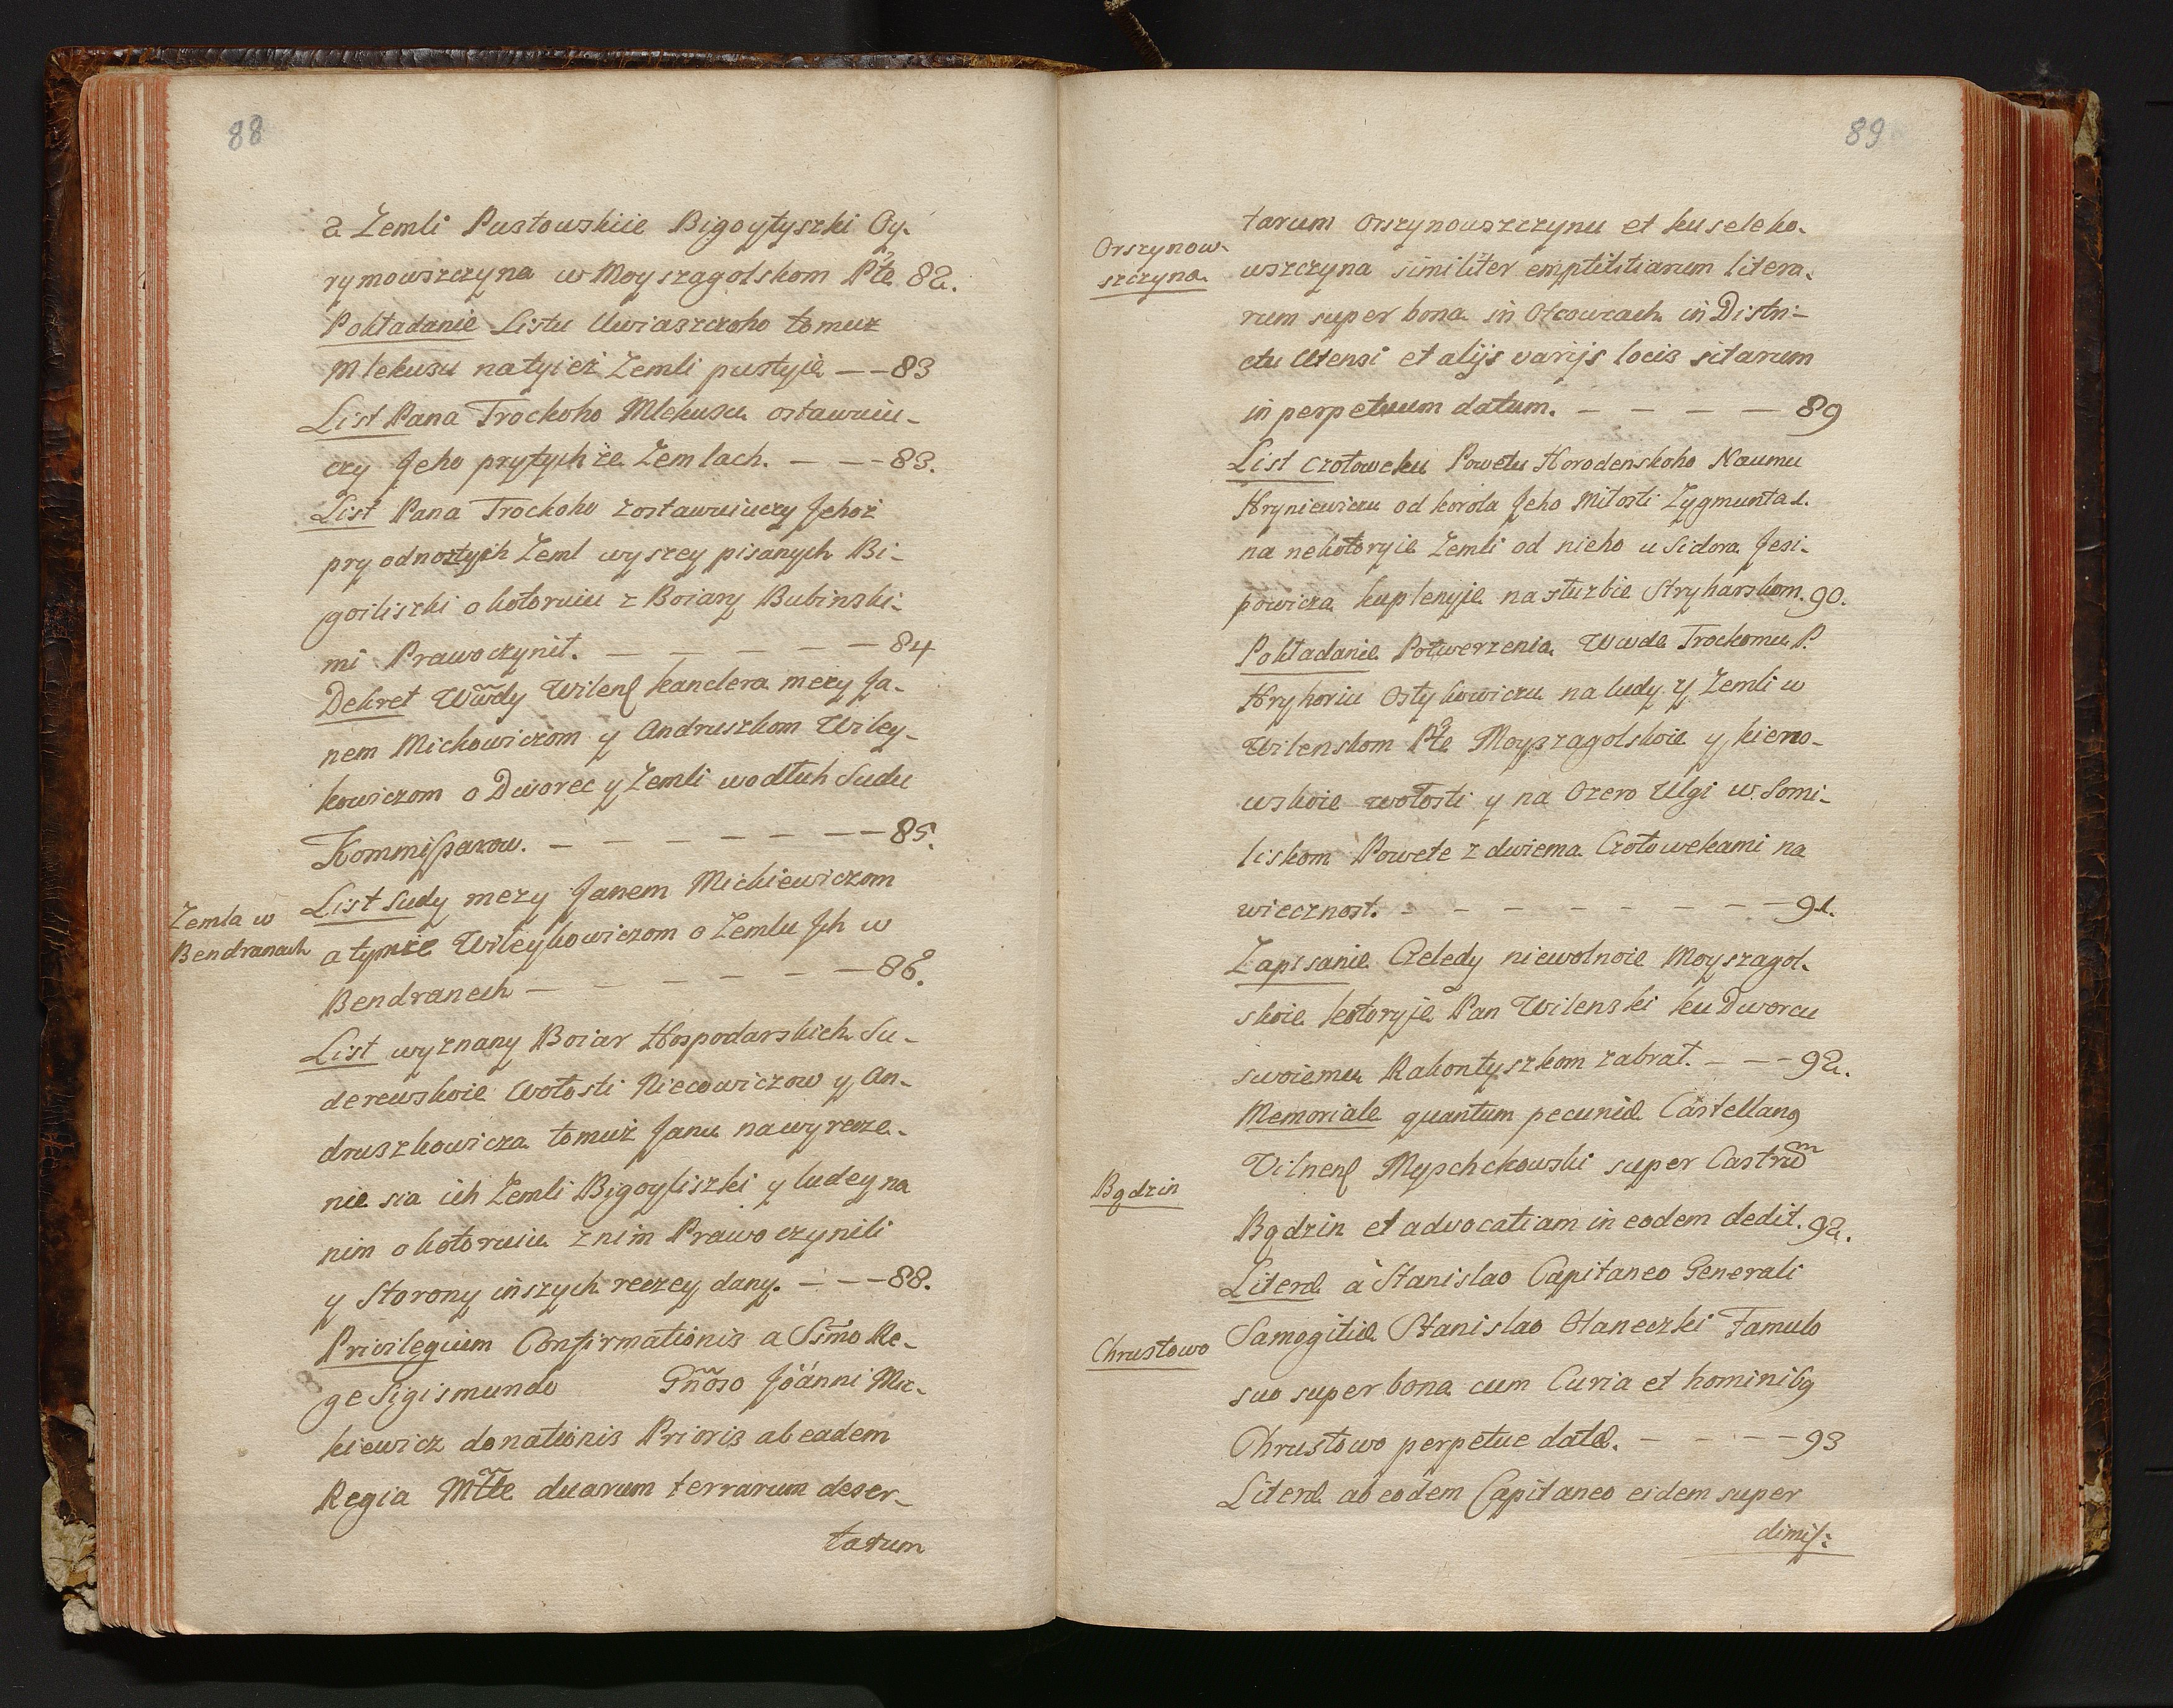 88
2 Zemli Pustowskiie Bigoytyszki Oy-
rymowszczyna w Moyszagolskom Pte 82.
Pokładanie Listu Uwiaszczoho tomuż
Mlekusu na tyież Zemli pustyie — — 83
List Pana Trockoho Mlekusu ostawuiu-
czy Jeho prytychże Zemlach. — — — 83.
List Pana Trockoho zostawuiuczy Jehoż
pry odnoztyich Zeml wyszey pisanych Bi-
goiliszki o kotoruiu z Boiary Bubinski-
mi Prawo czynił. — — — — — — 84
Dekret Wwdy Wilens kanclera mezy Ja-
nem Mickowiczom y Andruszkom Wiley-
kowiczom o Dworec y Zemli wodłuh Sudu
Kommissarow. — — — — — — — 85.
Zemla w
Bendranach
List Sudy mezy Janem Mickiewiczom
a tymże Wileykowiczom o Zemlu Jch w
Bendranech — — — — — — 86.
List wyznany Boiar Hospodarskich Su-
derewskoie Wołosti Niecowiczow y An-
druszkowicza tomuż Janu na wyrecze-
nie sia ich Zemli Bigoyliszki y ludey na
nim o kotoruiu z nim Prawo czynili
y Storony inszych reczey dany. — — — 88.
Privilegium Confirmationis a Simo Re-
ge Sigismundo Gnoso Joanni Mic-
kiewicz donationis Prioris ab eadem
Regia Mtte duarum terrarum deser-
tarum
89
Orszynow-
szczyna
tarum Orszynowszczynu et kuseleko-
wszczyna similiter emptititiarum litera-
rum super bona in Ofcowcach in Distri-
ctu Utensi et alijs varijs locis sitarum
in perpetuum datum. — — — — — 89
List czołoweku Powetu Horodenskoho Naumu
Hryniewiczu od korola Jeho Miłosti Zygmunta 1.
na nekotoryie Zemli od nieho u Sidora Jesi-
powicza kuplenyie na służbie Stryharskom. 90.
Pokładanie Potwerzenia Wwde Trockomu P.
Hryhoriu Ostykowiczu na ludy y Zemli w
Wilenskom Pte Moyszagolskoie y kierno-
wskoie wołosti y na Ozero Ulgi w Somi-
liskom Powete z dwiema Czołowekami na
wiecznost. — — — — — — — — — 91.
Zapisanie Czeledy niewolnoie Moyszagol-
skoie kotoryie Pan Wilenski ku Dworcu
swoiemu Rakontyszkom zabrał. — — — 92.
Memoriale quantum pecuniæ Castellanq
Vilnens Mypschckowski super Castrum
Bądzin
Bądzin et advocatiam in eodem dedit. 92.
Literæ à Stanislao Capitaneo Generali
Chrustowo
Samogitiæ Stanislao Olaneczki Famulo
suo super bona cum Curia et hominibq
Chrustowo perpetue datæ. — — — — 93
Literæ ab eodem Capitaneo eidem super
dimis: